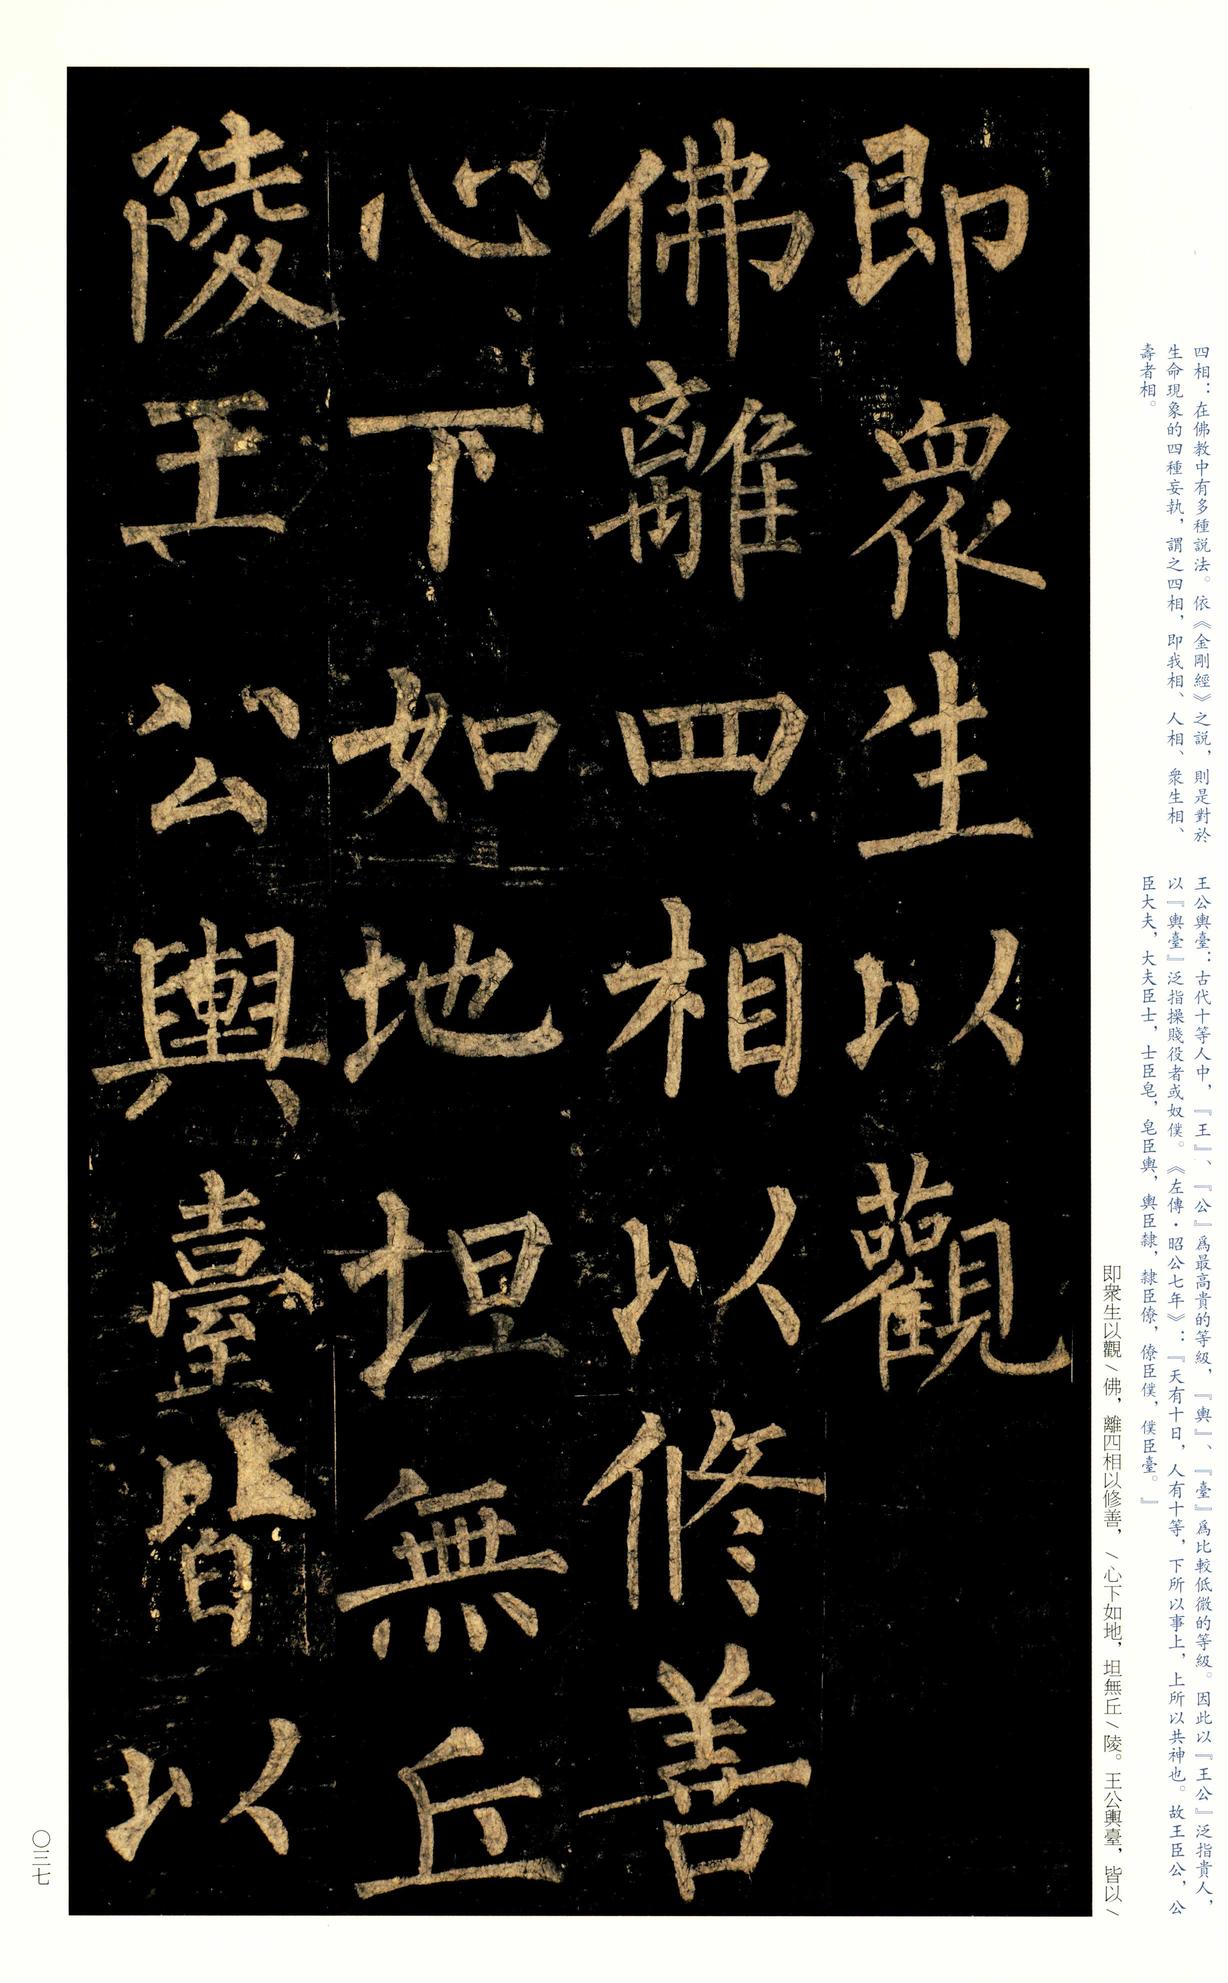 四相：在佛教中有多種説法。依《金剛經》之説，則是對於
生命現象的四種妄執，謂之四相，即我相、人相、衆生相、
壽者相。
王公輿臺：古代十等人中，『王』、『公』爲最高貴的等級，『輿』、『臺』爲比較低微的等級。因此以『王公』泛指貴人，
以『輿臺』泛指操賤役者或奴僕。《左傳·昭公七年》：『天有十日，人有十等，下所以事上，上所以共神也。故王臣公，公
臣大夫，大夫臣士，士臣皂，皂臣輿，輿臣隸，隸臣僚，僚臣僕，僕臣臺。』
即衆生以觀\佛，離四相以修善，\心下如地，坦無丘\陵。王公輿臺，皆以\
即衆生以觀
佛離四相以修善
心下如地坦無丘
陵王公輿臺皆以
〇三七